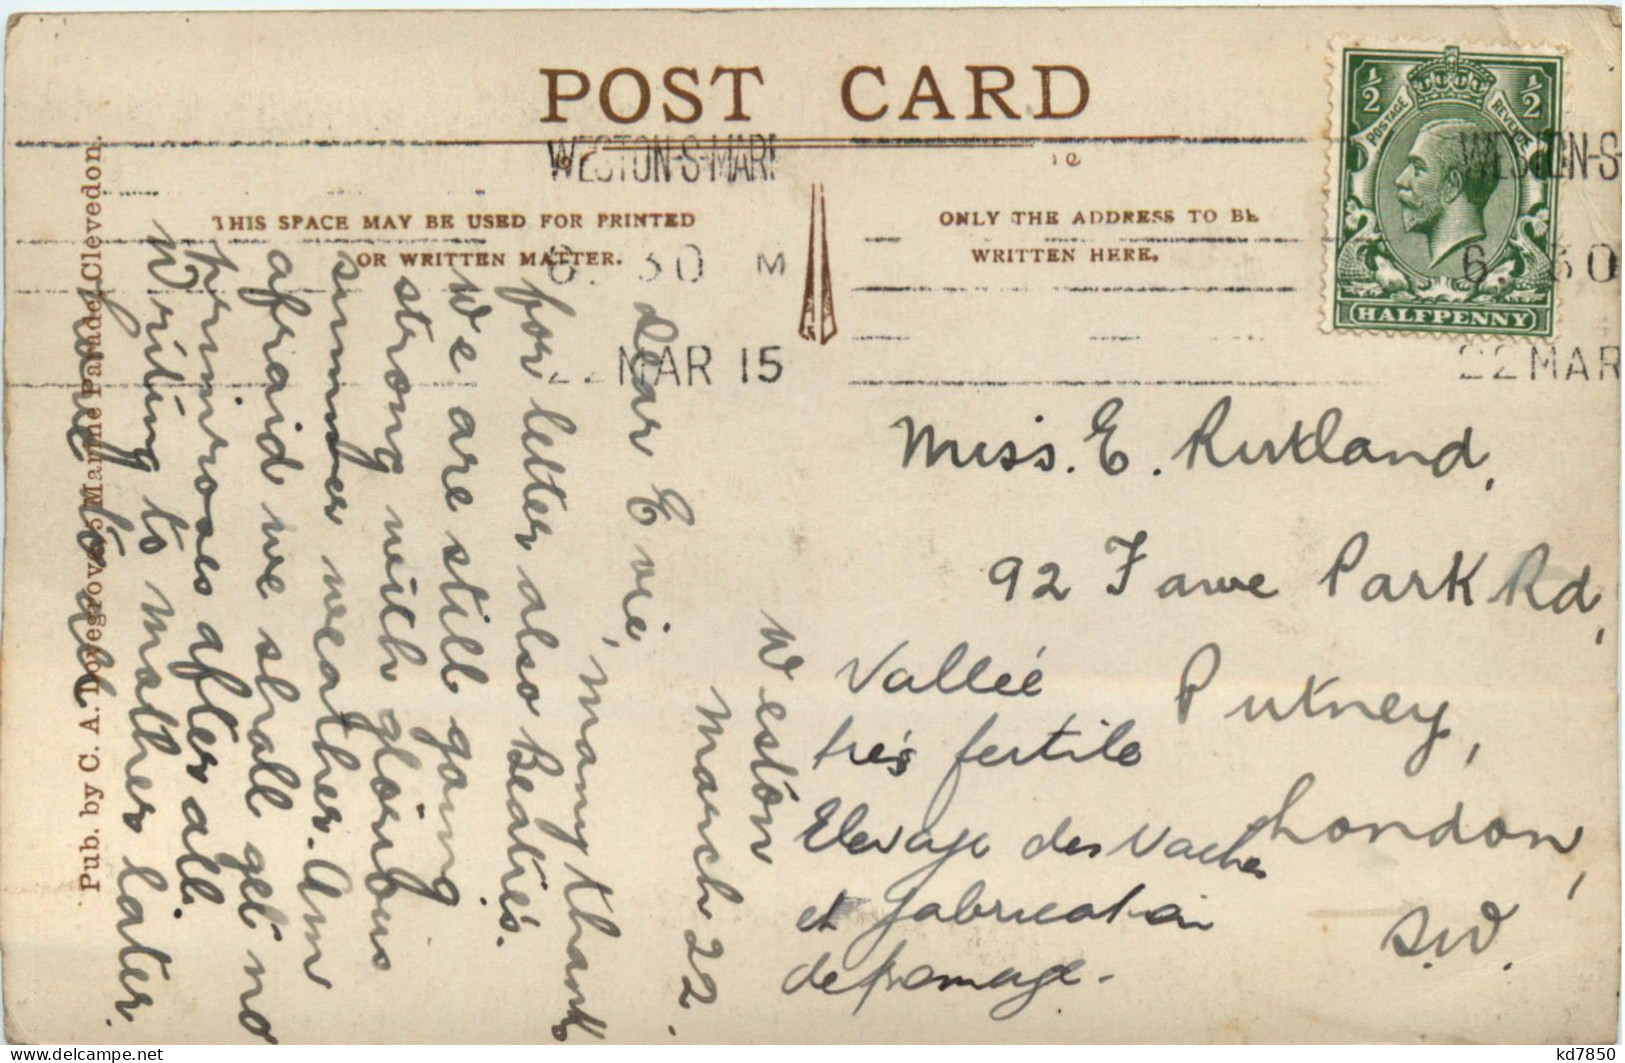 POST CARD
WESTON-S-MAR
WESTON-S-
THIS SPACE MAY BE USED FOR PRINTED
OR WRITTEN MATTER.
ONLY THE ADDRESS TO BE
WRITTEN HERE.
6. 30 M
6. 30
22 MAR 15
22 MAR
½ ½
POSTAGE REVENUE
HALFPENNY
Pub. by C. A. Dovegrove, 5 Marine Parade, Clevedon.
Weston
March 22.
Dear Evie, many thanks
for letter also Beatie's.
We are still going
strong with glorious
summer weather. Am
afraid we shall get no
primroses after all.
Writing to mother later.
love to all
Miss. E. Rutland,
92 Fawe Park Rd,
Putney,
London,
S.W.
Vallée
très fertile
Elevage des Vaches
et fabrication
de fromage.
kd7850